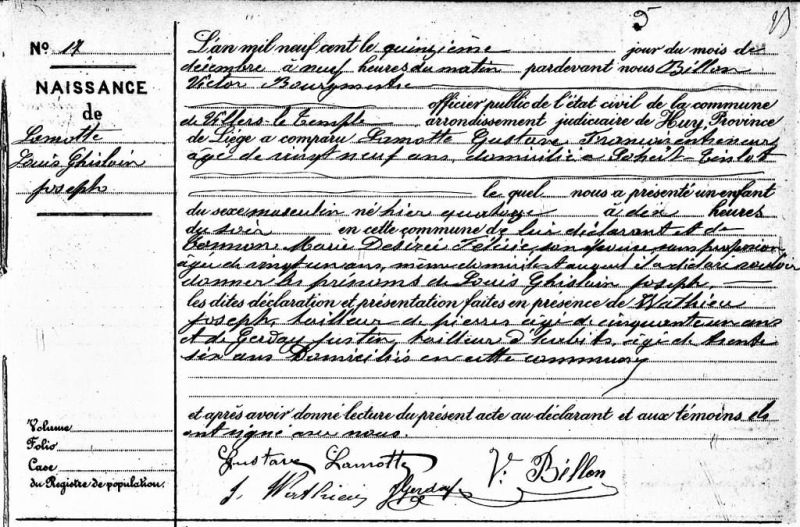 5
N.° 17
NAISSANCE
de
Lamotte
Louis Ghislain
Joseph
Volume
Folio
Case
du Registre de population.
L'an mil neuf cent le quinzième jour du mois de
décembre à neuf heures du matin pardevant nous Billon
Victor Bourgmestre
officier public de l'état civil de la commune
de Villers-le-Temple arrondissement judiciaire de Huy, Province
de Liège a comparu Lamotte Gustave, François
âgé de vingt neuf ans, domicilié à
lequel nous a présenté un enfant
du sexe masculin né hier quatorze à dix heures
du soir en cette commune de lui déclarant et de
Marie Desirée Félicie son épouse sans profession
âgée de vingt un ans, même domicile et auquel il a déclaré vouloir
donner les prénoms de Louis Ghislain Joseph,
les dites déclaration et présentation faites en présence de Wathieu
Joseph, tailleur de pierres âgé de cinquante un ans
et de Gerday Justin, tailleur d'habits, âgé de trente
six ans Domiciliés en cette commune
et après avoir donné lecture du présent acte au déclarant et aux témoins ils
ont signé avec nous.
Gustave Lamotte V. Billon
J. Wathieu J Gerday